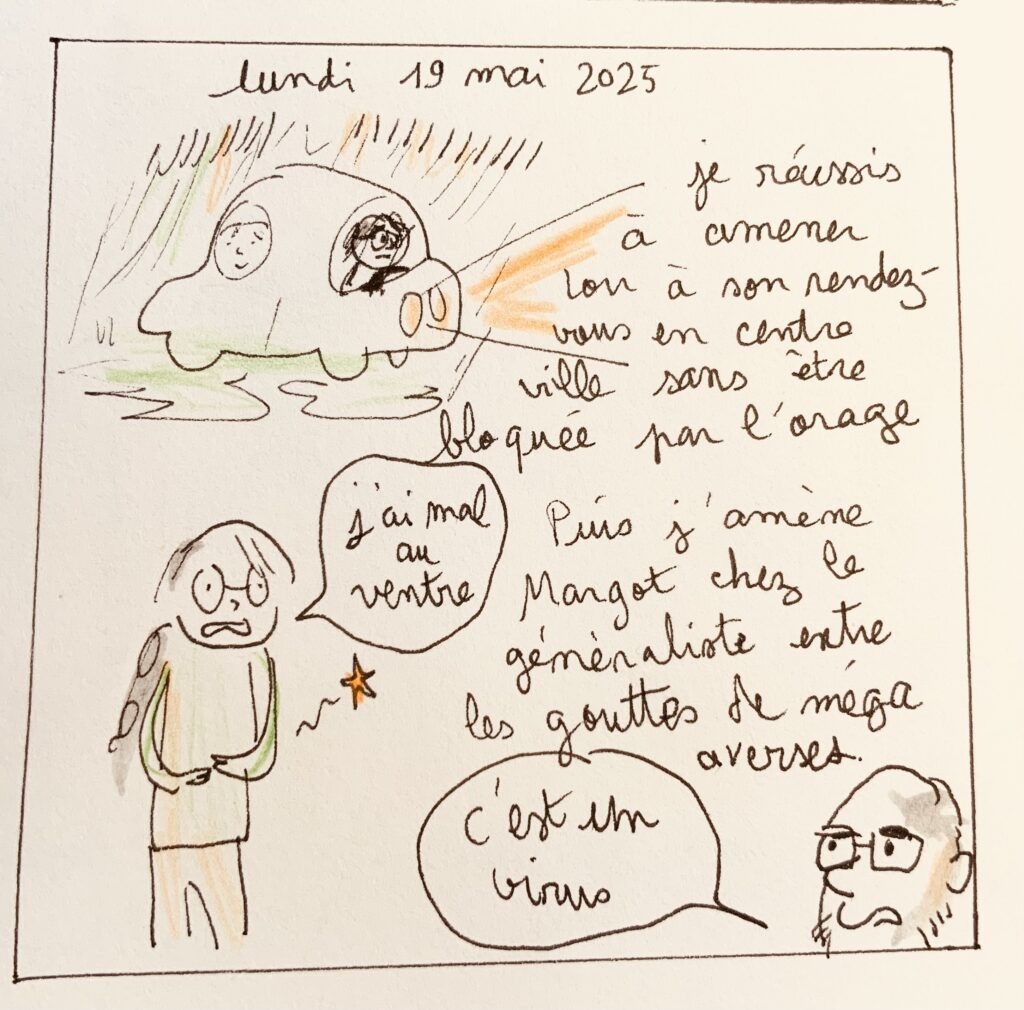 lundi 19 mai 2025
je réussis
à amener
Lou à son rendez-
vous en centre
ville sans être
bloquée par l'orage
j'ai mal
au
ventre
Puis j'amène
Margot chez le
généraliste entre
les gouttes de méga
averses.
c'est un
virus